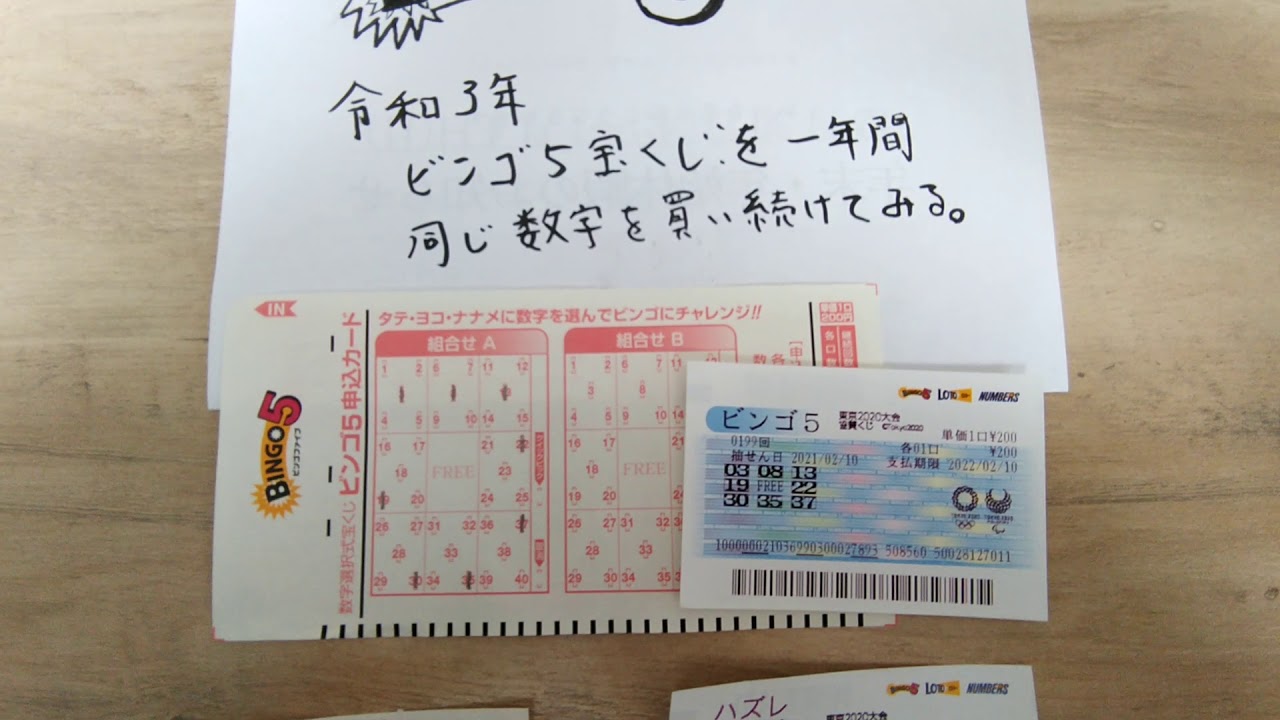 令和3年
ビンゴ5宝くじを一年間
同じ数字を買い続けてみる。
IN
BINGO5
ビンゴファイブ
数字選択式宝くじ ビンゴ5申込カード
タテ・ヨコ・ナナメに数字を選んでビンゴにチャレンジ!!
単価1口
200円
組合せ A
1 2 6 7 11 12
4 5 9 10 14 15
16 17 21
18 FREE 23
20 24 25
26 27 31 32 36
28 33 38
29 34 39 40
組合せ B
1 2 6 7 11
3 8
4 5 9 10 14
16 17 21
18 FREE
19 20 24
26 27 31 32
28 33
29 30 34 35
BINGO5 LOTO NUMBERS
ビンゴ5
東京2020大会
協賛くじ ©Tokyo2020
単価1口¥200
0199回
各01口
¥200
抽せん日 2021/02/10
支払期限 2022/02/10
03 08 13
19 FREE 22
30 35 37
TOKYO 2020
TOKYO 2020
100000021036990300027893 508560 50028127011
BINGO5 LOTO NUMBERS
ハズレ
東京2020大会